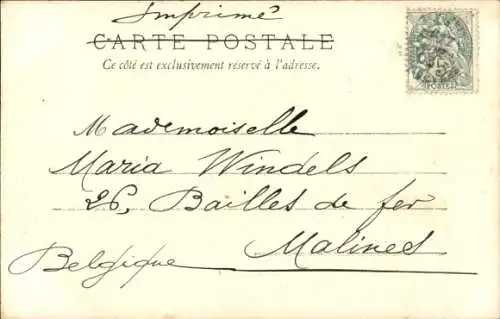 Imprimé
CARTE POSTALE
Ce côté est exclusivement réservé à l'adresse.
POSTES
Mademoiselle
Maria Windels
26, Bailles de fer
Malines
Belgique